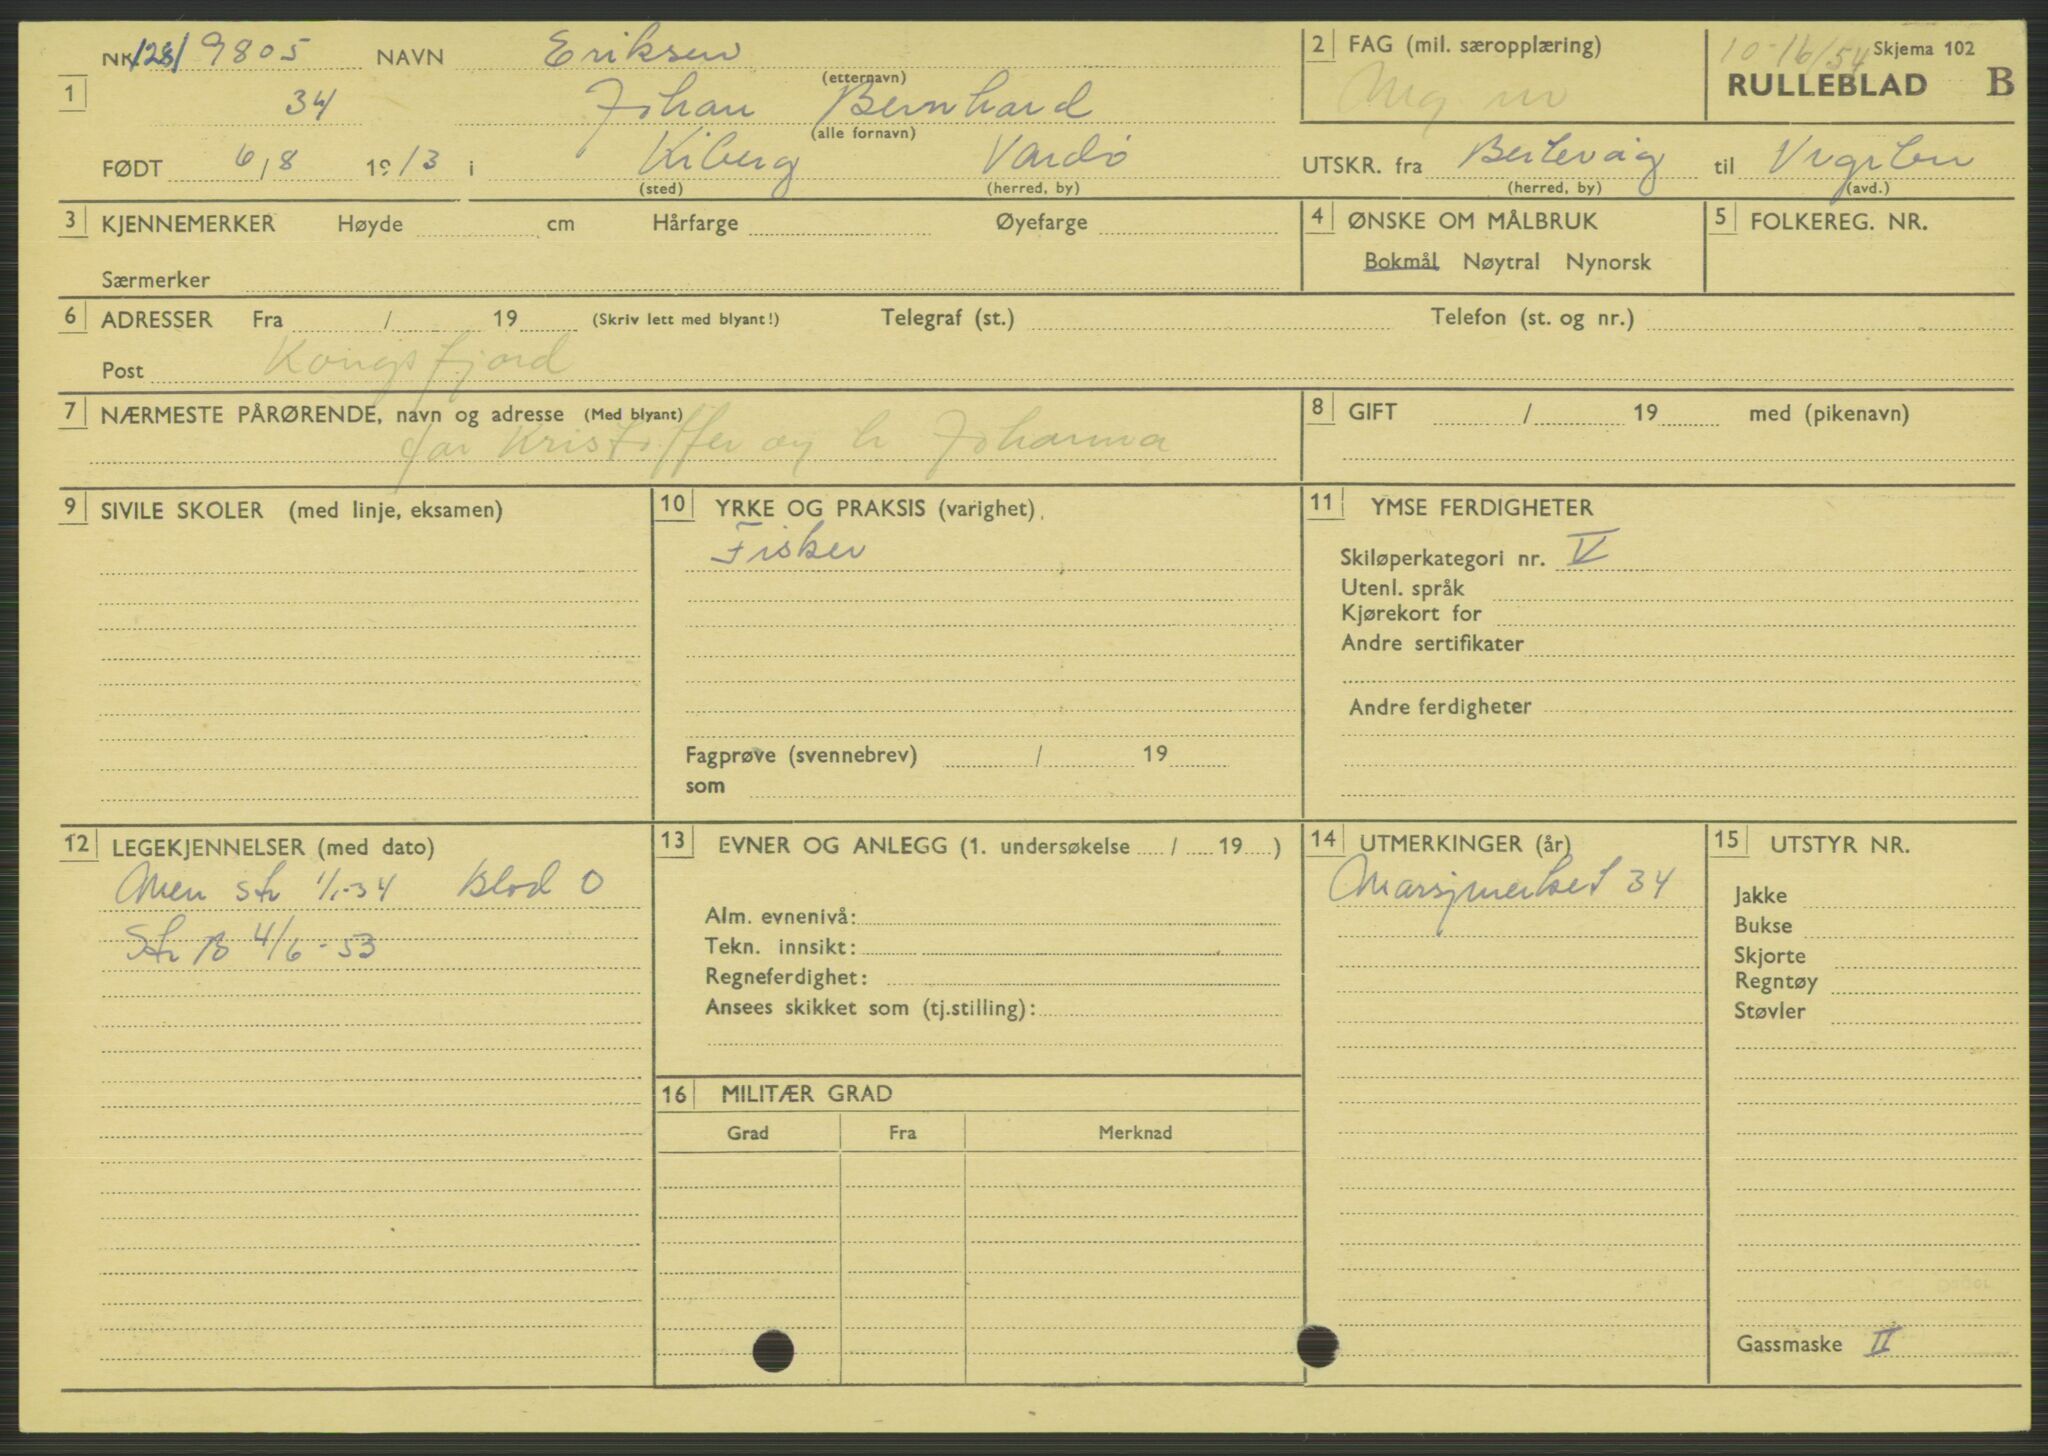 NR. 128/9805 NAVN Eriksen
(etternavn)
1 34 Johan Bernhard
(alle fornavn)
FØDT 6/8 1913 i Kiberg Vardø
(sted) (herred, by)
2 FAG (mil. særopplæring)
Mg
10-16/54 Skjema 102
RULLEBLAD B
UTSKR. fra Berlevåg til
(herred, by) (avd.)
3 KJENNEMERKER Høyde cm Hårfarge Øyefarge
Særmerker
4 ØNSKE OM MÅLBRUK
Bokmål Nøytral Nynorsk
5 FOLKEREG. NR.
6 ADRESSER Fra / 19 (Skriv lett med blyant!) Telegraf (st.) Telefon (st. og nr.)
Post Kongsfjord
7 NÆRMESTE PÅRØRENDE, navn og adresse (Med blyant)
far Kristoffer og h. Johanna
8 GIFT / 19 med (pikenavn)
9 SIVILE SKOLER (med linje, eksamen)
10 YRKE OG PRAKSIS (varighet)
Fisker
Fagprøve (svennebrev) / 19
som
11 YMSE FERDIGHETER
Skiløperkategori nr. V
Utenl. språk
Kjørekort for
Andre sertifikater
Andre ferdigheter
12 LEGEKJENNELSER (med dato)
Men str 1/1-34 Blod O
Str B 4/6-53
13 EVNER OG ANLEGG (1. undersøkelse / 19 )
Alm. evnenivå:
Tekn. innsikt:
Regneferdighet:
Ansees skikket som (tj.stilling):
14 UTMERKINGER (år)
Marsjmerket 34
15 UTSTYR NR.
Jakke
Bukse
Skjorte
Regntøy
Støvler
Gassmaske II
16 MILITÆR GRAD
Grad Fra Merknad